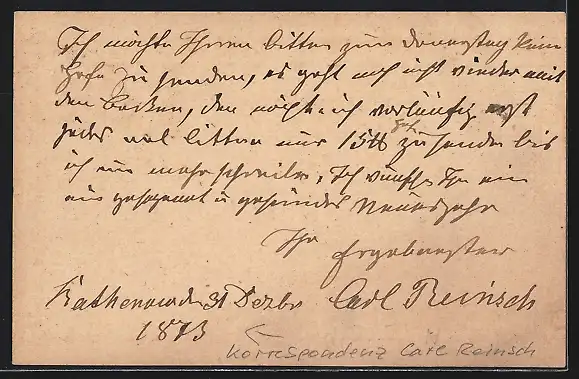 Ich möchte Ihnen bitten zum Donnerstag kein
Hefe zu senden, es geht noch nicht wieder mit
den backen, den möchte ich vorläufig erst
jedes mal bitten nur 15 ℔ zu senden bis
ich um mehr schreibe, Ich wünsche Ihn ein
ein gesegnet u gesundes Neuesjahr
Ihr
Ergebenster
Rathenow den 31 Dezbr Carl Reinsch
1873
Korrespondenz Carl Reinsch